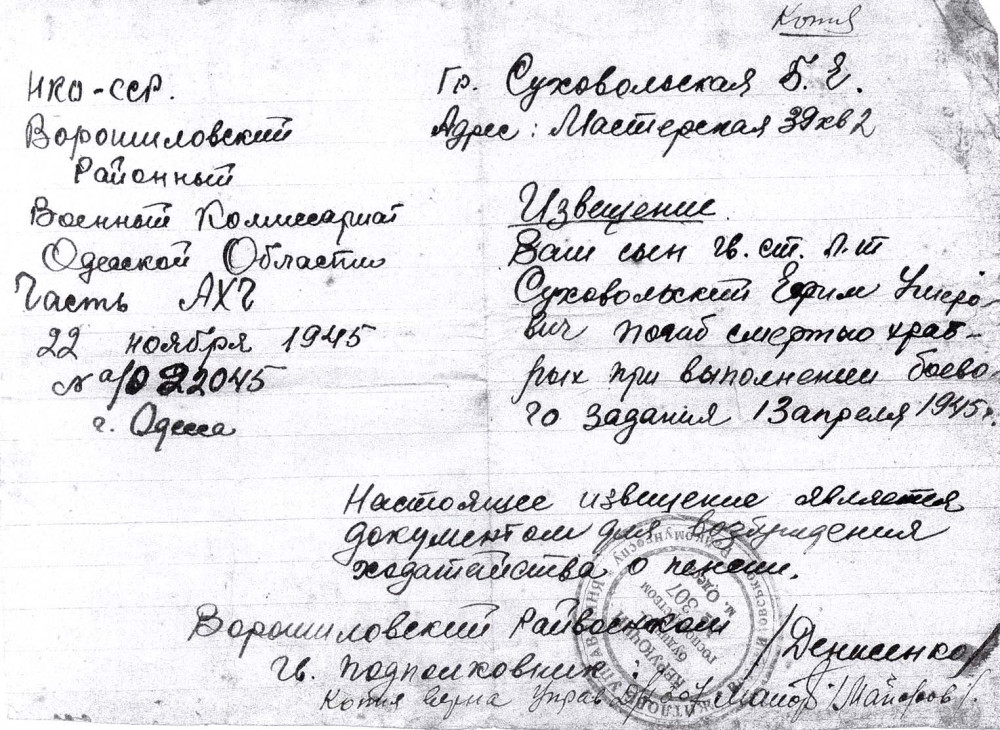 Копия
НКО-ССР.
Ворошиловский
Районный
Военный Комиссариат
Одесской Области
Часть АХЧ
22 ноября 1945
№ а/022045
г. Одесса
Гр. Суховольская Б. Е.
Адрес: Мастерская 39 кв 2
Извещение.
Ваш сын гв. ст. л-т
Суховольский Ефим Умеро
вич погиб смертью храб-
рых при выполнении боево-
го задания 13 апреля 1945 г.
Настоящее извещение является
документом для возбуждения
ходатайства о пенсии.
Ворошиловский Райвоенком
гв. подполковник: /Денисенко/
Копия верна Управ 307 Майор /Майоров/.
307